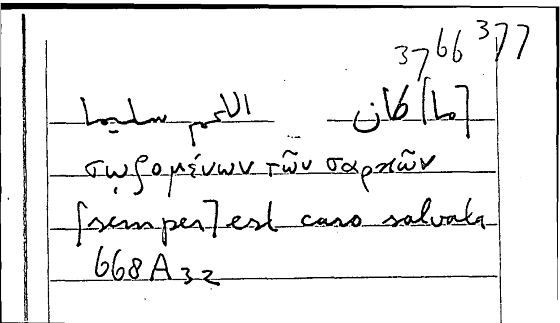 3766 377
[ما] كان اللحم سليما
σῳζομένων τῶν σαρκῶν
[semper] est caro salvata
668A32